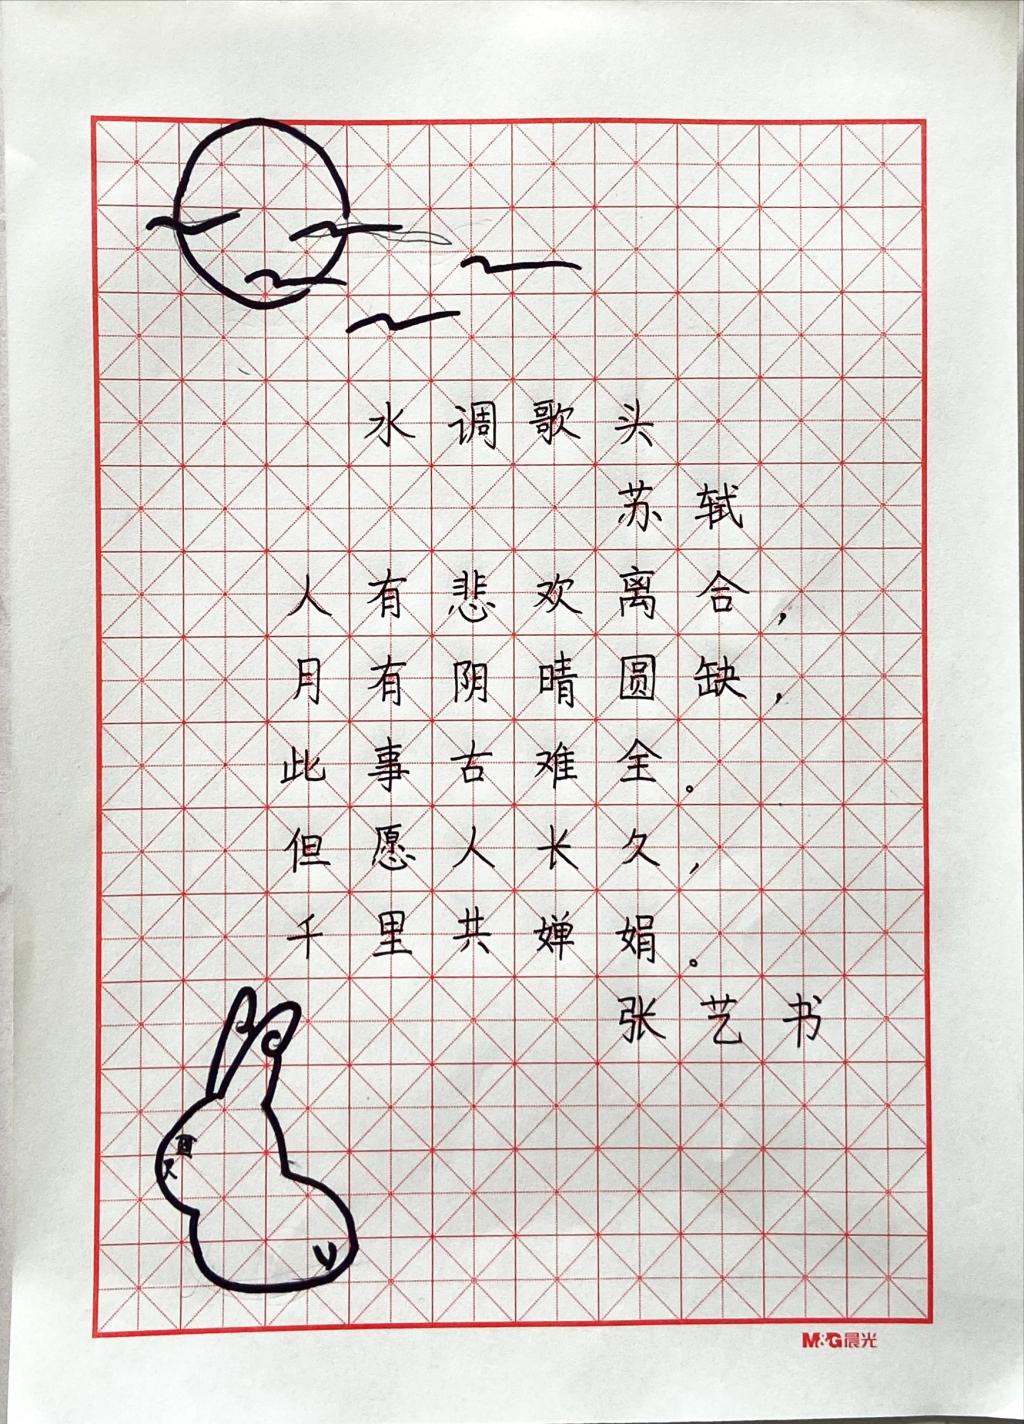 水调歌头
苏轼
人有悲欢离合，
月有阴晴圆缺，
此事古难全。
但愿人长久，
千里共婵娟。
张艺书
M&G晨光